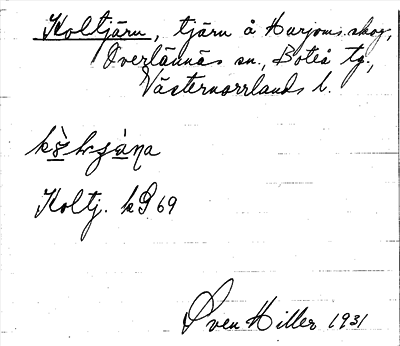 Koltjärn, tjärn å Harjoms skog,
Överlännäs sn., Boteå tg.,
Västernorrlands l.
Koltj. k 69
Sven Hiller 1931